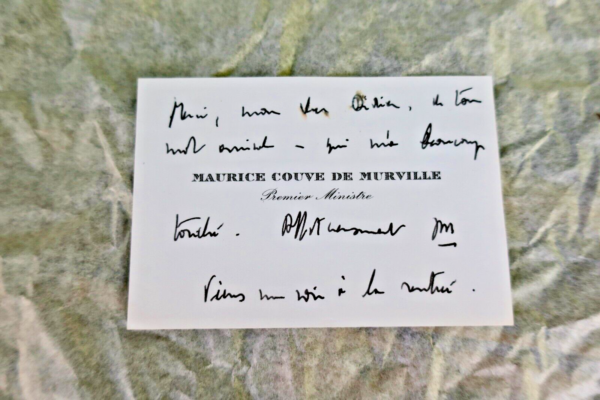 Merci, mon cher Didier, de ton
mot amical – qui m'a beaucoup
MAURICE COUVE DE MURVILLE
Premier Ministre
touché. Affectueusement
Viens me voir à la rentrée.